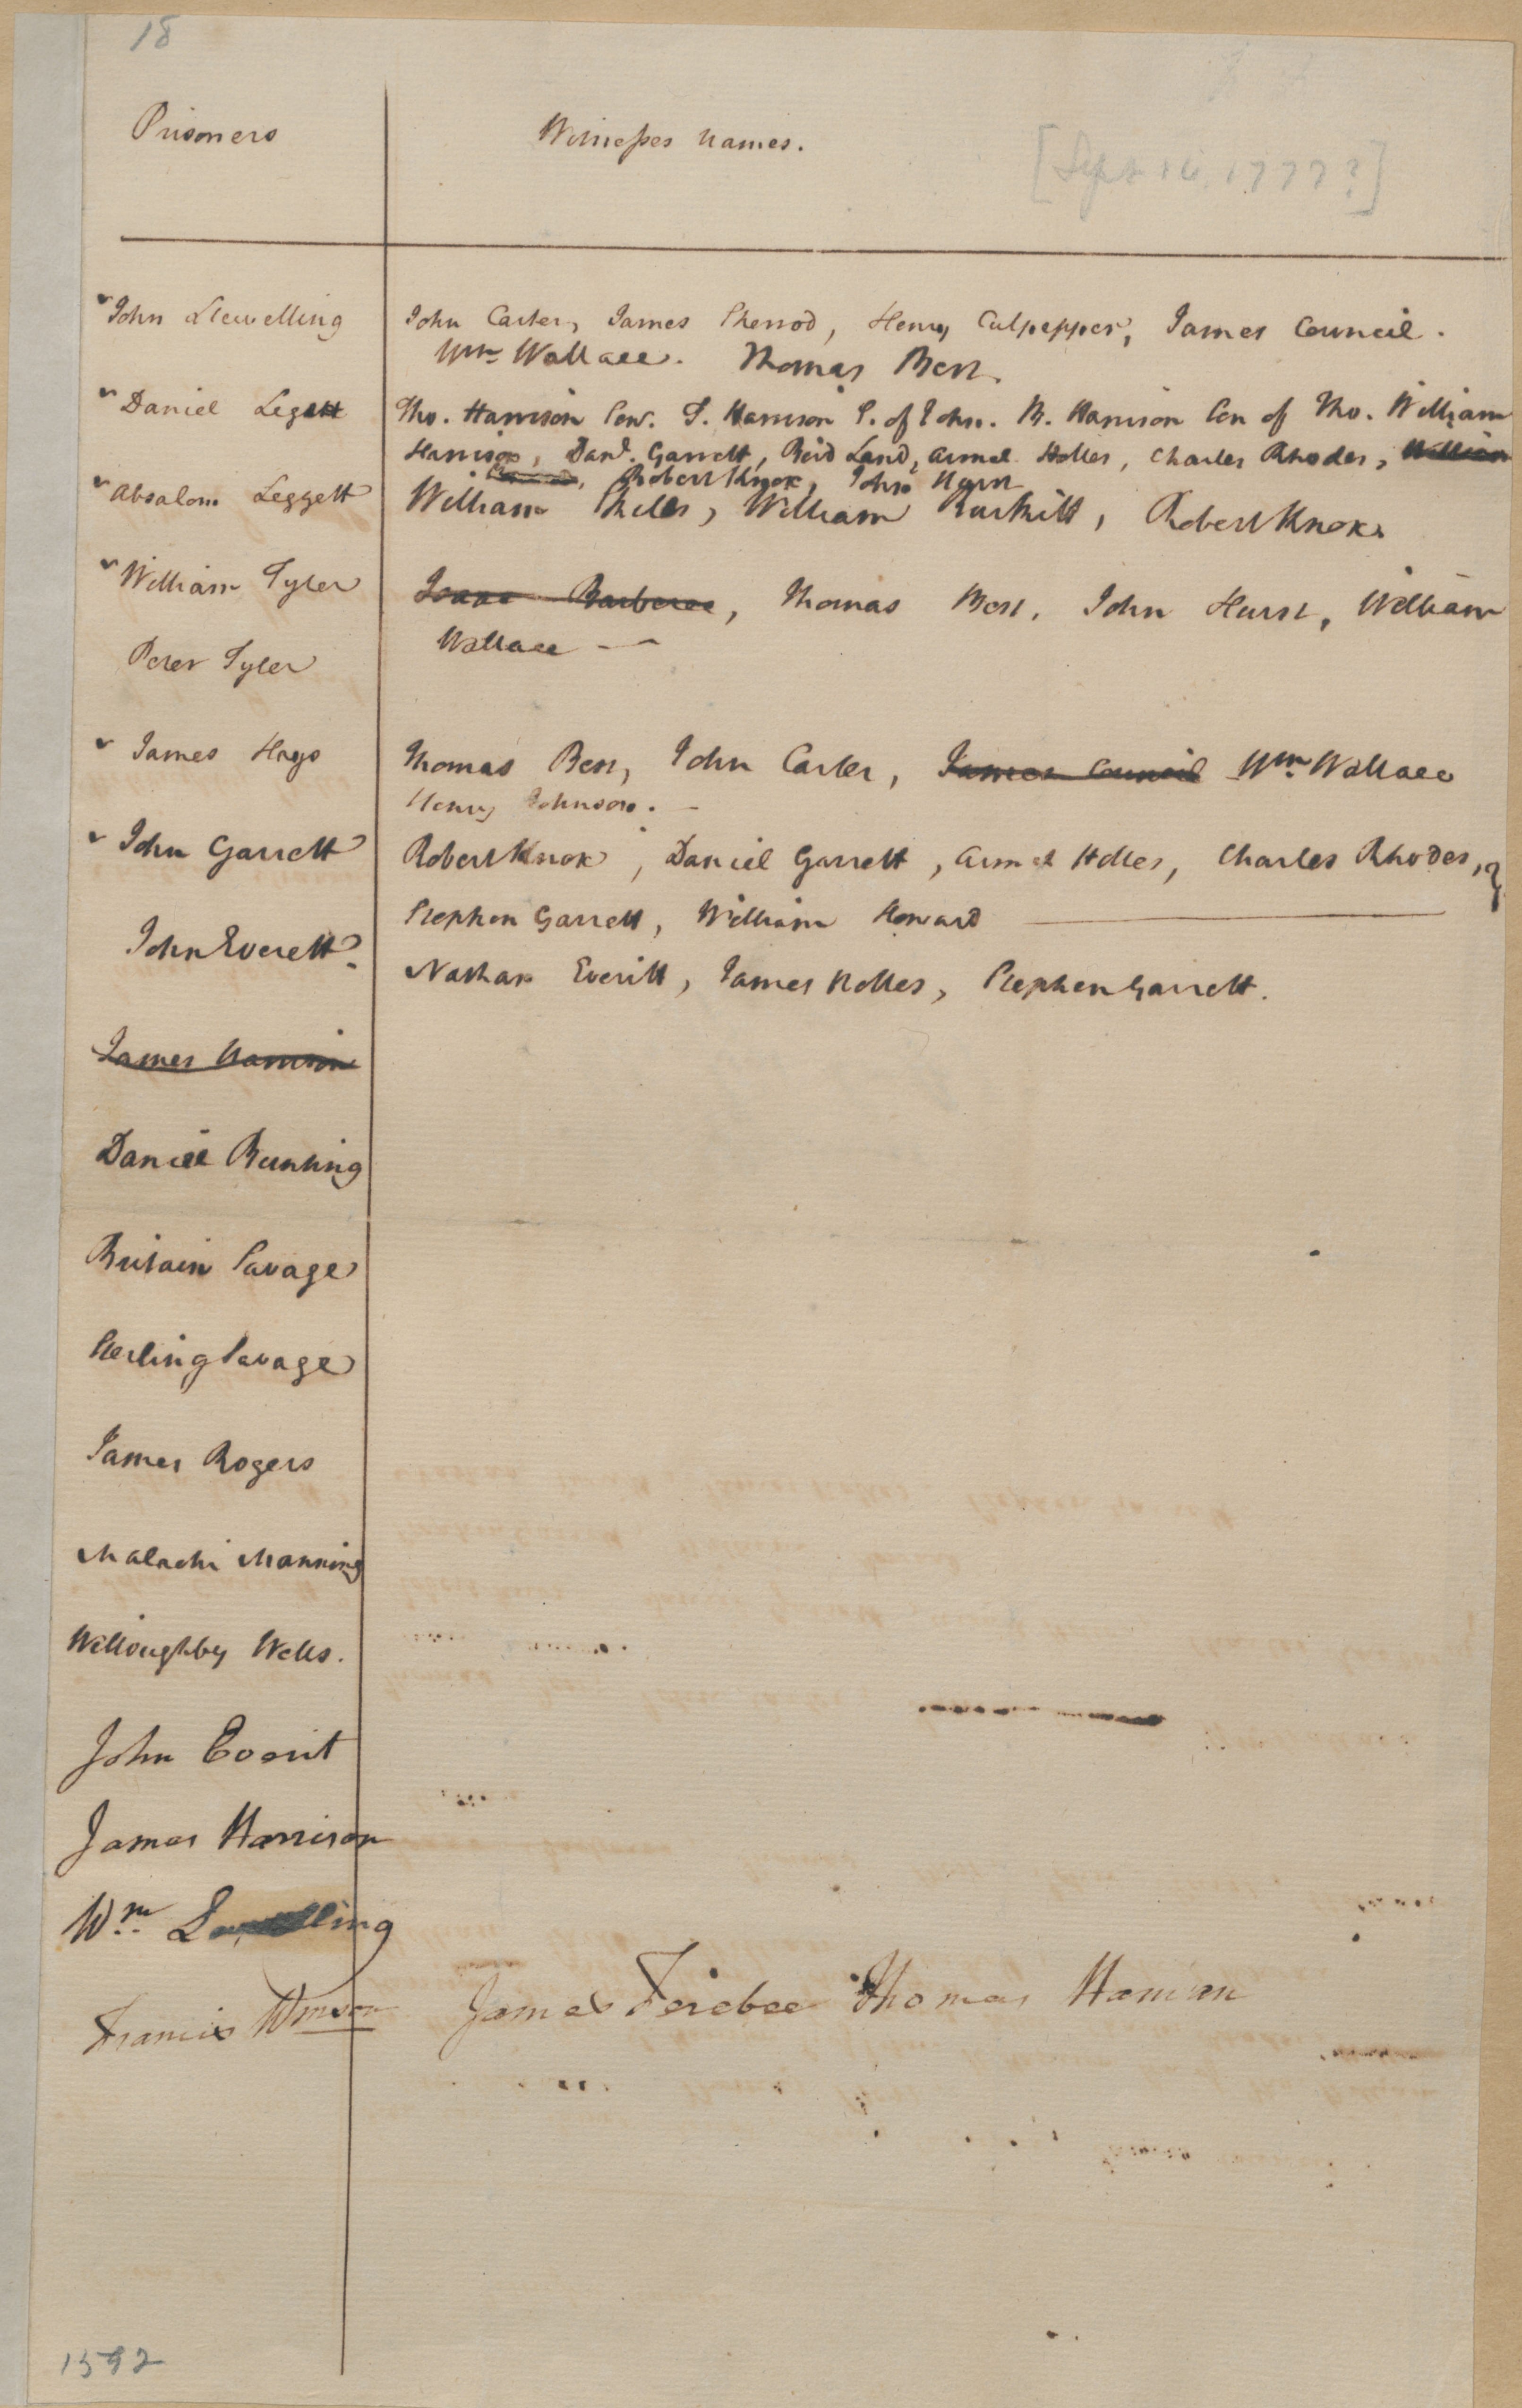 18
Prisoners
Witnesses Names.
[Sept 16, 1777?]
John Llewelling
John Carter, James Sherrod, Henry Culpepper, James Council.
Wm Wallace. Thomas Best.
Daniel Legett
Tho. Harrison Sen. T. Harrison S. of John. B. Harrison Son of Tho. William
Harrison, Danl. Garrett, Reid Land, Armel Holles, Charles Rhodes, William
Robert Knox, John Hurst
Absalom Leggett
William Skiles, William Burkitt, Robert Knox
William Tyler
Isaac Barberee, Thomas Best, John Hurst, William
Wallace —
Peter Tyler
James Hays
Thomas Best, John Carter, James Council Wm Wallace
Henry Johnson. –
John Garrett
Robert Knox, Daniel Garrett, Armel Holles, Charles Rhodes,
Stephen Garrett, William Howard
John Everett
Nathan Everitt, James Holles, Stephen Garrett.
James Harrison
Daniel Bunting
Britain Savage
Sterling Savage
James Rogers
Malachi Manning
Willoughby Wells.
John Everit
James Harrison
Wm Lewelling
Francis Winson
James Ferebee Thomas Harrison
1592